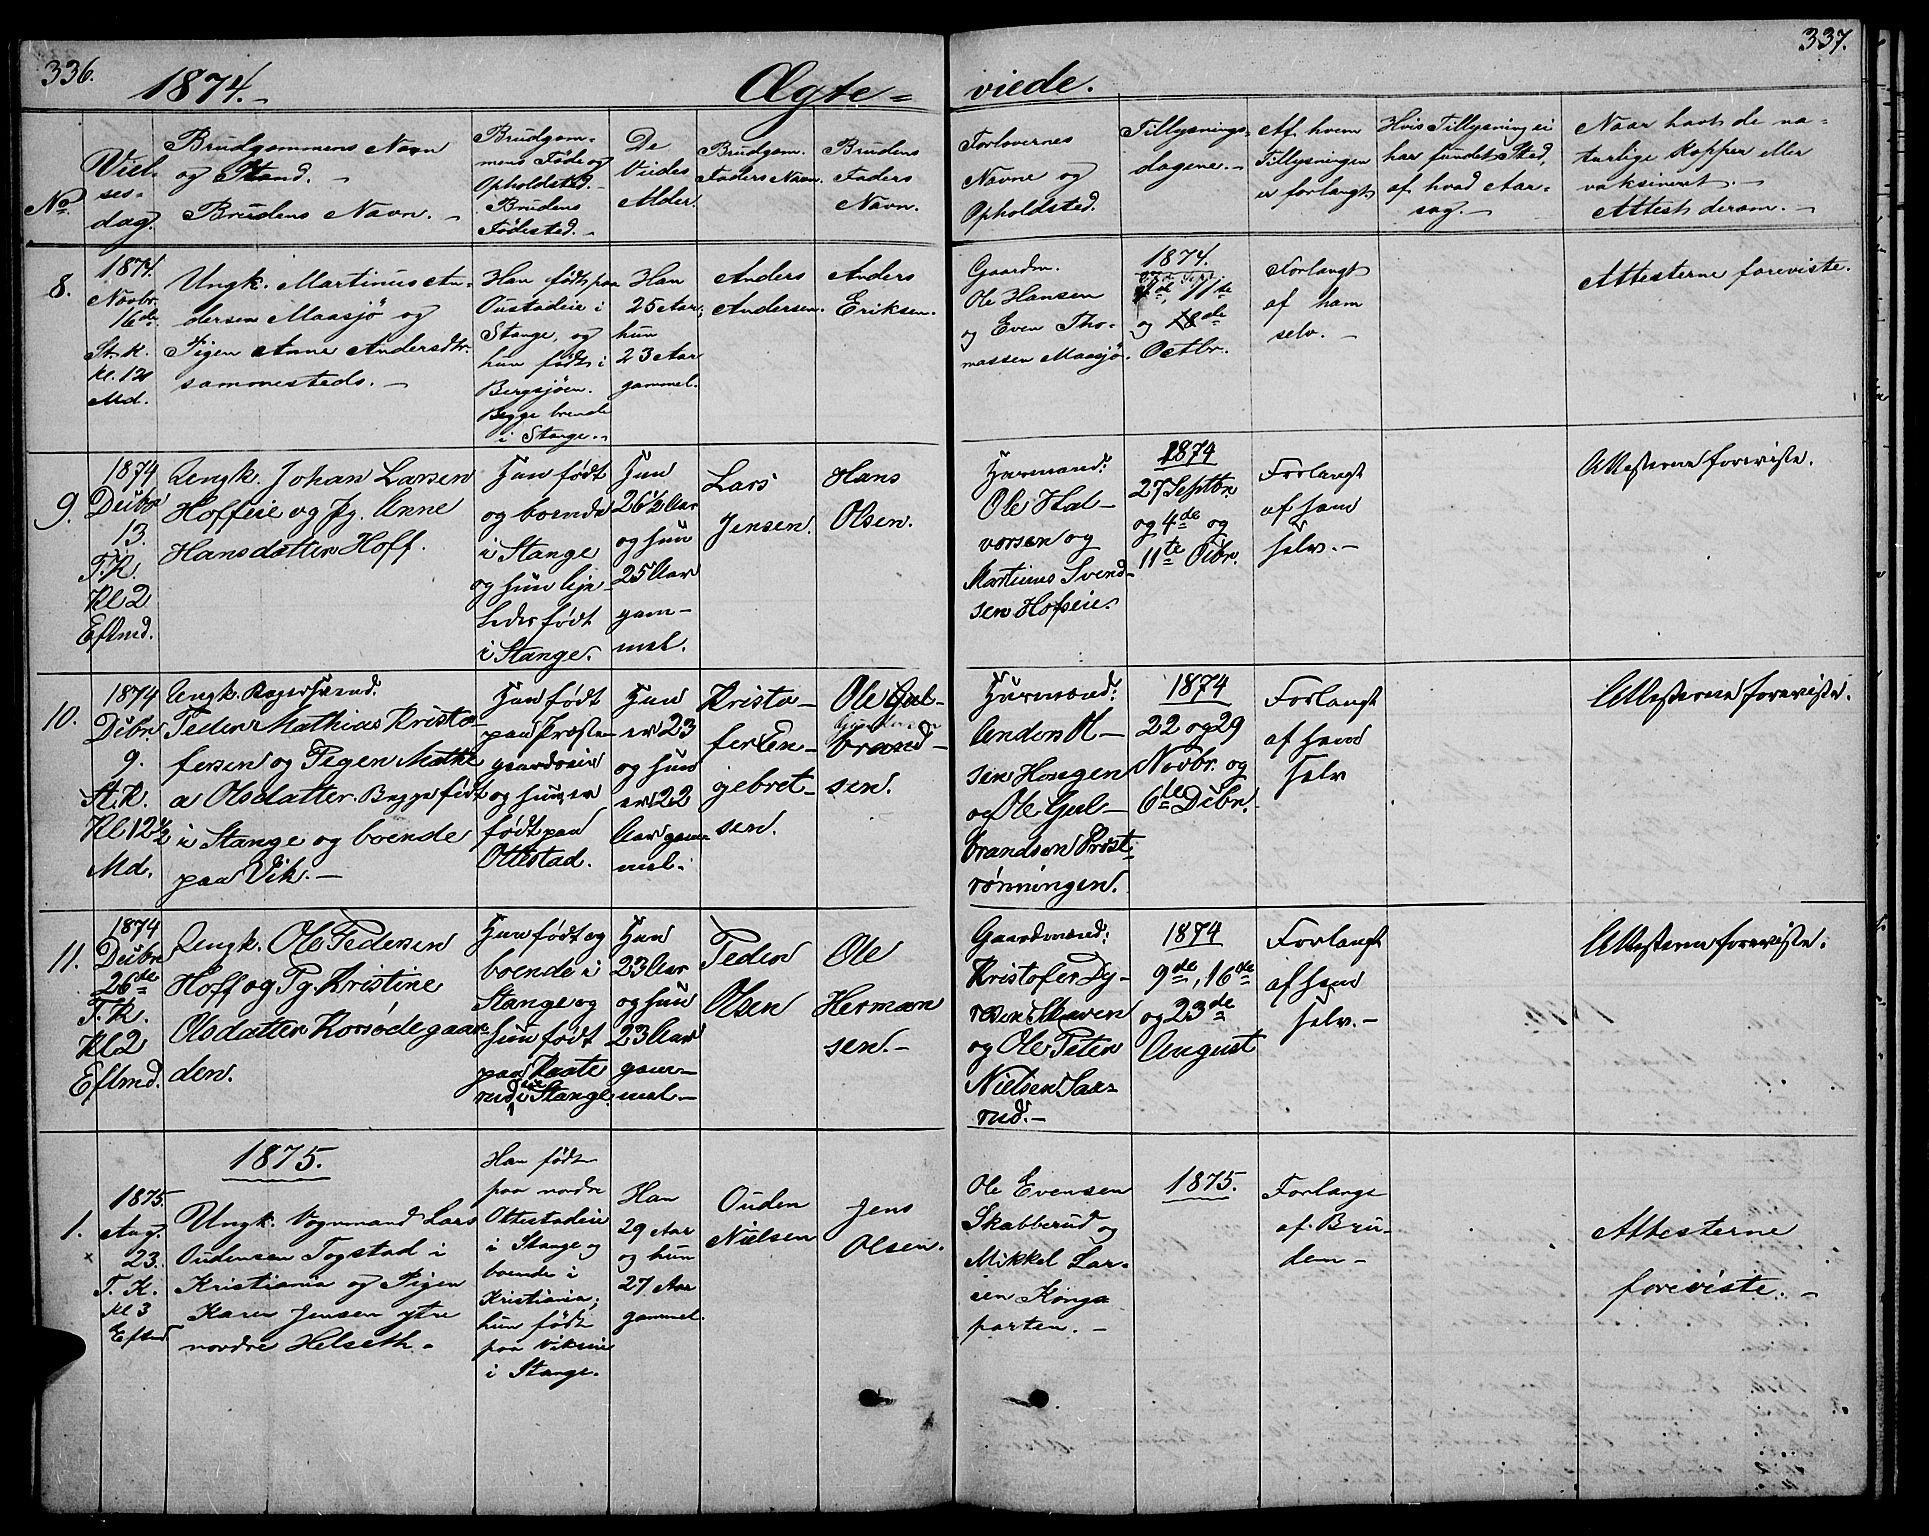 336.
337.
1874.-
Ægte=
viede.
No
Viel-
ses-
dag.
Brudgommens Navn
og Stand. -
Brudens Navn. -
Brudgom-
mens Føde og
Opholdsted. -
Brudens
Fødested. -
De
Viedes
Alder.
Brudgom.
Faders Navn.
Brudens
Faders
Navn.
Forlovernes
Navne og
Opholdsted.
Tillysnings-
dagene. -
Af hvem
Tillysningen
er forlangt
Hvis Tillysning ei
har fundet Sted,
af hvad Aar-
sag. -
Naar havt de na-
turlige Kopper eller
vaksineret. -
Attest derom. -
8.
1874.
Novbr.
16de
St. K.
Kl. 12
Md.
Ungk. Martinus An-
dersen Maasjö og
Pigen Anne Andersdtr.
sammesteds. -
Han født paa
Oustadeie i
Stange, og
hun født i
Bergsjöen.
Begge boende
i Stange. -
Han
25 Aar,
hun
23 Aar
gammel.
Anders
Andersen.
Anders
Eriksen.
Gaardm.
Ole Hansen
og Even Tho-
massen Maasjö.
1874.
4de, 11te
og 18de
Octbr.
Forlangt
af ham
selv. -
Attesterne foreviste.
9.
1874
Decbr
13.
T. K.
Kl 2
Eftmd.
Ungk. Johan Larsen
Hoffeie og Pg. Anne
Hansdatter Hoff.
Han født
og boende
i Stange
og hun lige-
ledes født
i Stange.
Han
26½ Aar
og hun
25 Aar
gam-
mel.
Lars
Jensen.
Hans
Olsen.
Huusmænd:
Ole Hal-
vorsen og
Martinus Svend-
sen Hofseie.
1874
27 Septbr.
og 4de og
11te Otbr.
Forlangt
af ham
selv. -
Attesterne foreviste.
10.
1874
Dcbr.
9.
St. K.
Kl 12½
Md.
Ungk. Bagersvend.
Peder Mathias Kristo-
fersen og Pigen Mathe
a Olsdatter. Begge født
i Stange og boende
paa Vik. -
Han født
paa Præste-
gaardseie
og hun er
født paa
Ottestad.
Han
er 23
og hun
er 22
Aar gam-
mel.
Kristo-
fer En-
gebret-
sen.
Ole Gul-
brand-
sen.
Huusmænd:
Anders Ol-
sen Hougen
og Ole Gul-
brandsen Prest-
rönningen.
1874
22 og 29
Novbr. og
6te Dcbr.
Forlangt
af ham
selv
Attesterne foreviste.
11.
1874
Decbr
26de
T. K.
Kl 2
Eftmd.
Ungk. Ole Pedersen
Hoff og Pg. Kristine
Olsdatter Korsödegaar-
den.
Han født og
boende i
Stange og
hun født
paa Raate
rud i Stange
Han
23 Aar
og hun
23 Aar
gam-
mel. -
Peder
Olsen
Ole
Herman
sen. -
Gaardmænd:
Kristofer Dy-
resen Skaven
og Ole Peter
Nielsen Saa-
rud. -
1874
9de, 16de
og 23de
August
Forlangt
af ham
selv. -
Attesterne foreviste.
1875.
1.
1875.
Aug.
23.
T. K.
Kl 3
Eftmd.
Ungk. Vognmand Lars
Oudensen Togstad i
Kristiania og Pigen
Karen Jensen ytre
nordre Helseth. -
Han født
paa nordre
Ottestadeie
i Stange og
boende i
Kristiania;
hun født
paa Vikseie
i Stange.
Han
29 Aar
og hun
27 Aar
gammel.
Ouden
Nielsen
Jens
Olsen.
Ole Evensen
Skabberud og
Mikkel Lar-
sen Konga
parten. -
1875.
Forlangt
af Bru-
den -
Attesterne
foreviste. -